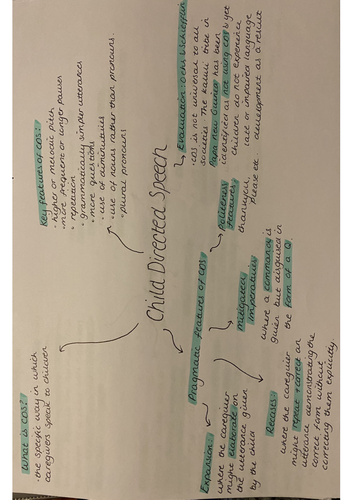 Child Directed Speech
What is CDS?
• the specific way in which
caregivers speak to children
Key features of CDS:
• higher or melodic pitch
• more frequent or longer pauses
• repetition
• grammatically simpler utterances
• more questions
• use of diminutives
• use of nouns rather than pronouns
• plural pronouns
Evaluation: Ochs & Schieffelin
• CDS is not universal to all
societies. The Kaluli tribe in
Papa New Guinea has been
identified as not using CDS & yet
children do not experience
late or impaired language
development as a result
Pragmatic features of CDS:
Politeness
features:
thankyou,
please etc
mitigated
imperatives
where a command is
given but disguised in
the form of a Q
Recasts:
where the caregiver
might repeat & correct an
utterance, demonstrating the
correct form without
correcting them explicitly
Expansion:
where the caregiver
might elaborate on
the utterance given
by the child